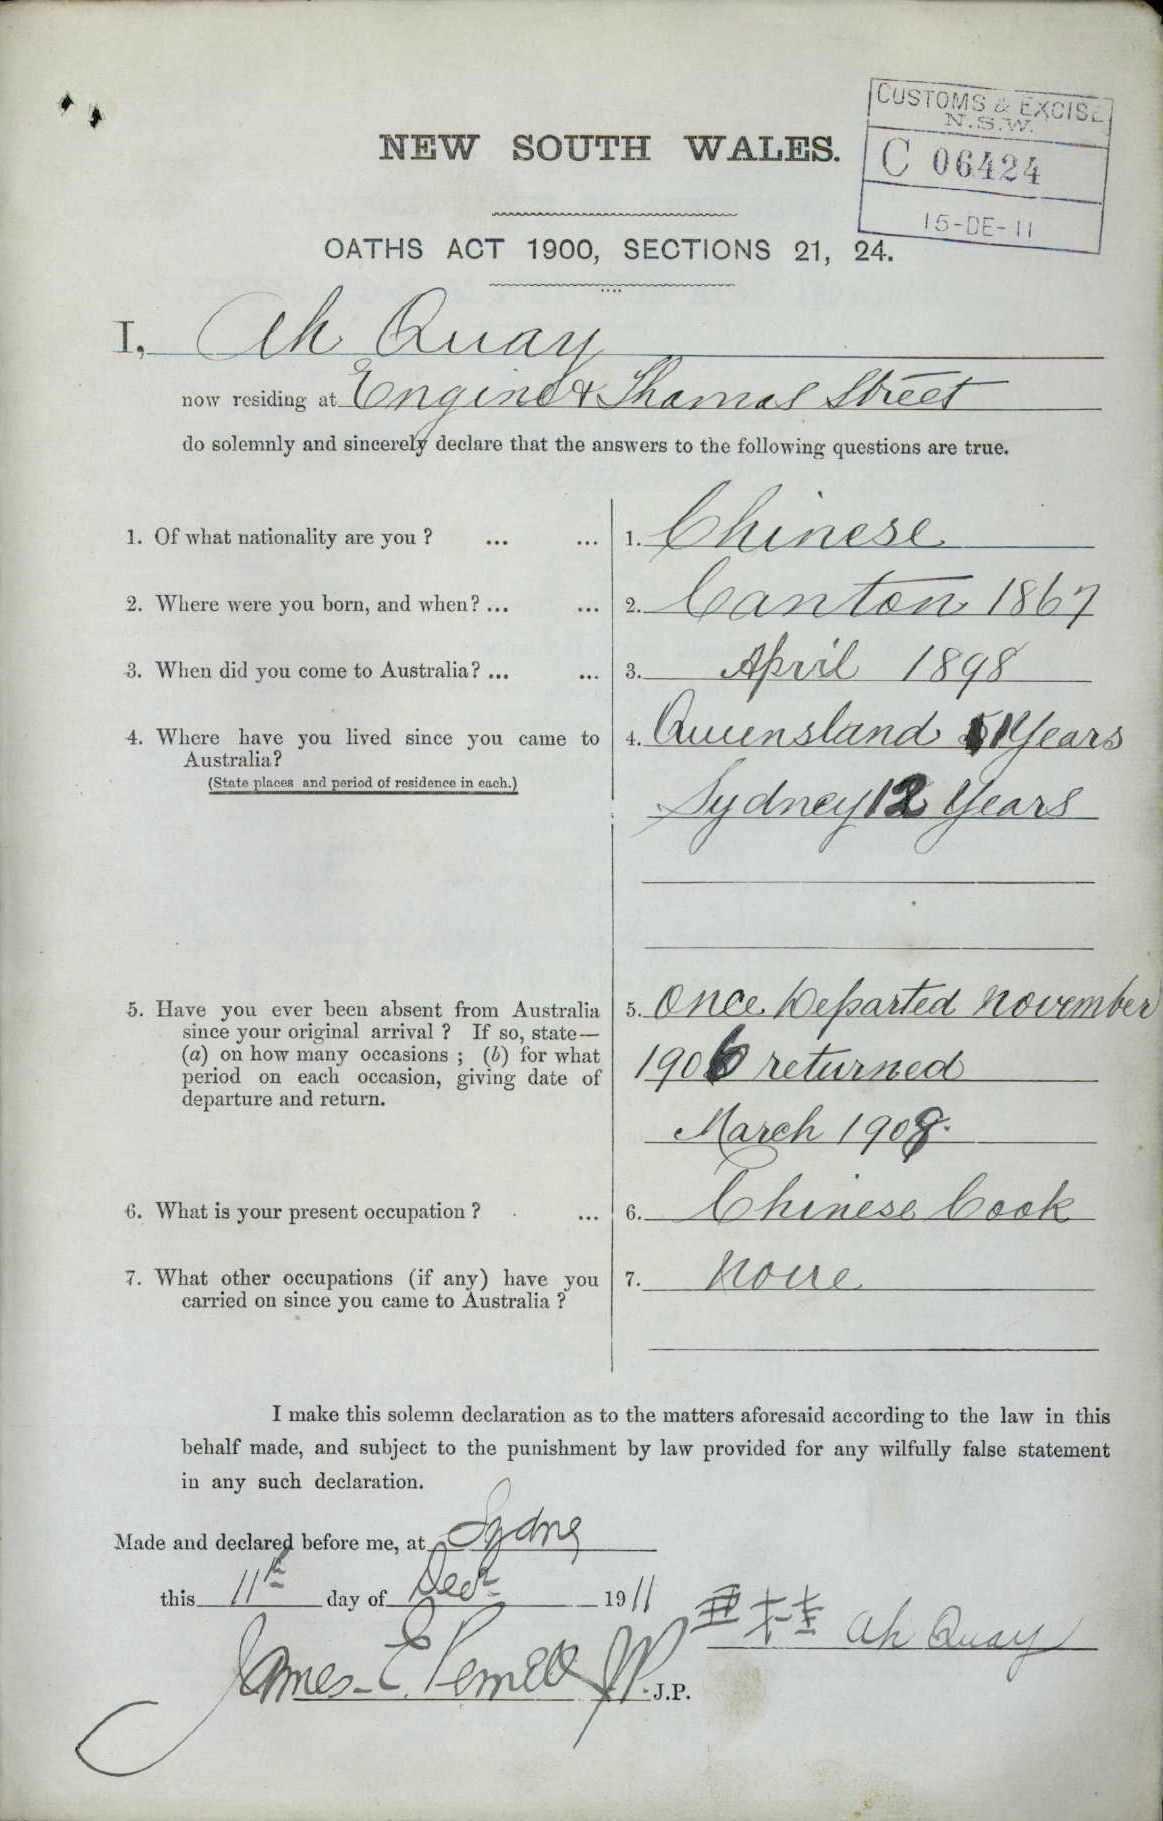 CUSTOMS & EXCISE
N.S.W.
C 06424
15-DE-11
NEW SOUTH WALES.
OATHS ACT 1900, SECTIONS 21, 24.
I, Ah Quay
now residing at Engine & Thomas Street
do solemnly and sincerely declare that the answers to the following questions are true.
1. Of what nationality are you ? ... ... 1. Chinese
2. Where were you born, and when? ... ... 2. Canton 1867
3. When did you come to Australia? ... ... 3. April 1898
4. Where have you lived since you came to 4. Queensland 1 Years
Australia?
(State places and period of residence in each.)
Sydney 12 Years
5. Have you ever been absent from Australia 5. Once Departed November
since your original arrival ? If so, state—
(a) on how many occasions ; (b) for what 1906 returned
period on each occasion, giving date of
departure and return.
March 1908.
6. What is your present occupation ? ... 6. Chinese Cook
7. What other occupations (if any) have you 7. None
carried on since you came to Australia ?
I make this solemn declaration as to the matters aforesaid according to the law in this
behalf made, and subject to the punishment by law provided for any wilfully false statement
in any such declaration.
Made and declared before me, at Sydney
this 11th day of Decr 1911
Ah Quay
James E. JP. J.P.